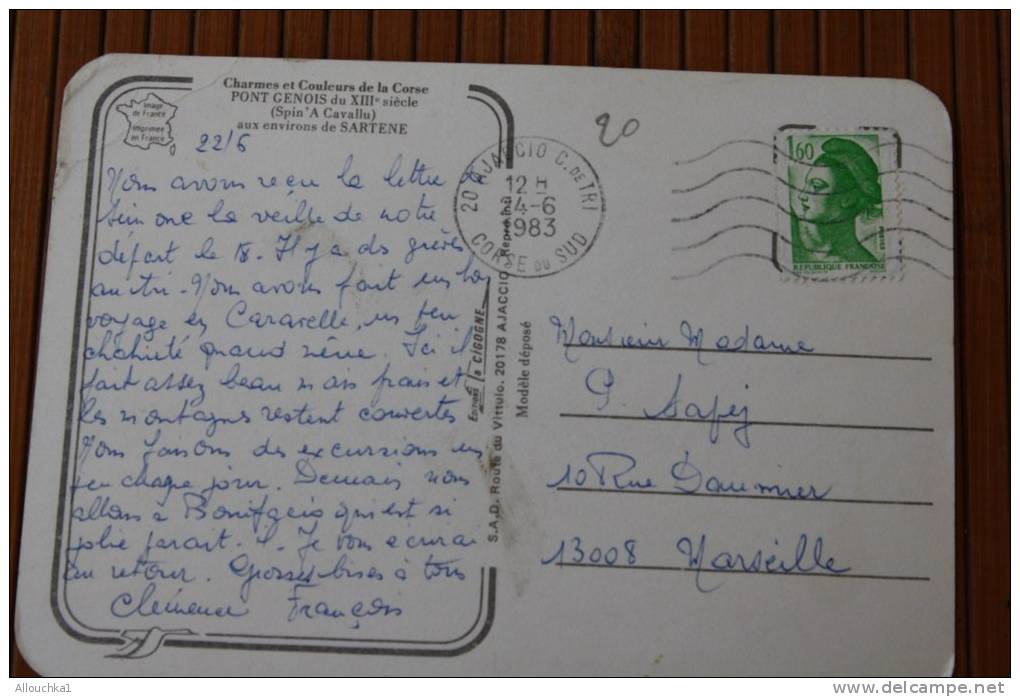 Charmes et Couleurs de la Corse
PONT GENOIS du XIIIe siècle
(Spin'A Cavallu)
aux environs de SARTENE
Image
de France
Imprimée
en France
22/6
Nous avons reçu la lettre de
Simone la veille de notre
départ le 18. Il y a ds grèves
au tri. Nous avons fait un bon
voyage en Caravelle, un peu
chahuté quand même. Ici il
fait assez beau mais frais et
les montagnes restent couvertes
Nous faisons des excursions un
peu chaque jour. Demain nous
allons à Bonifacio qui est si
jolie parait-il. Je vous écrirai
au retour. Grosses bises à tous
Clémence François
EDITIONS la CIGOGNE
S.A.D. Route du Vittulo. 20178 AJACCIO - Repro. Int
Modèle déposé
20
20 AJACCIO C. DE TRI
12 H
4-6
1983
CORSE DU SUD
1,60
POSTES
REPUBLIQUE FRANCAISE
Monsieur Madame
10 Rue Daumier
13008 Marseille
Allouchka1
www.delcampe.net